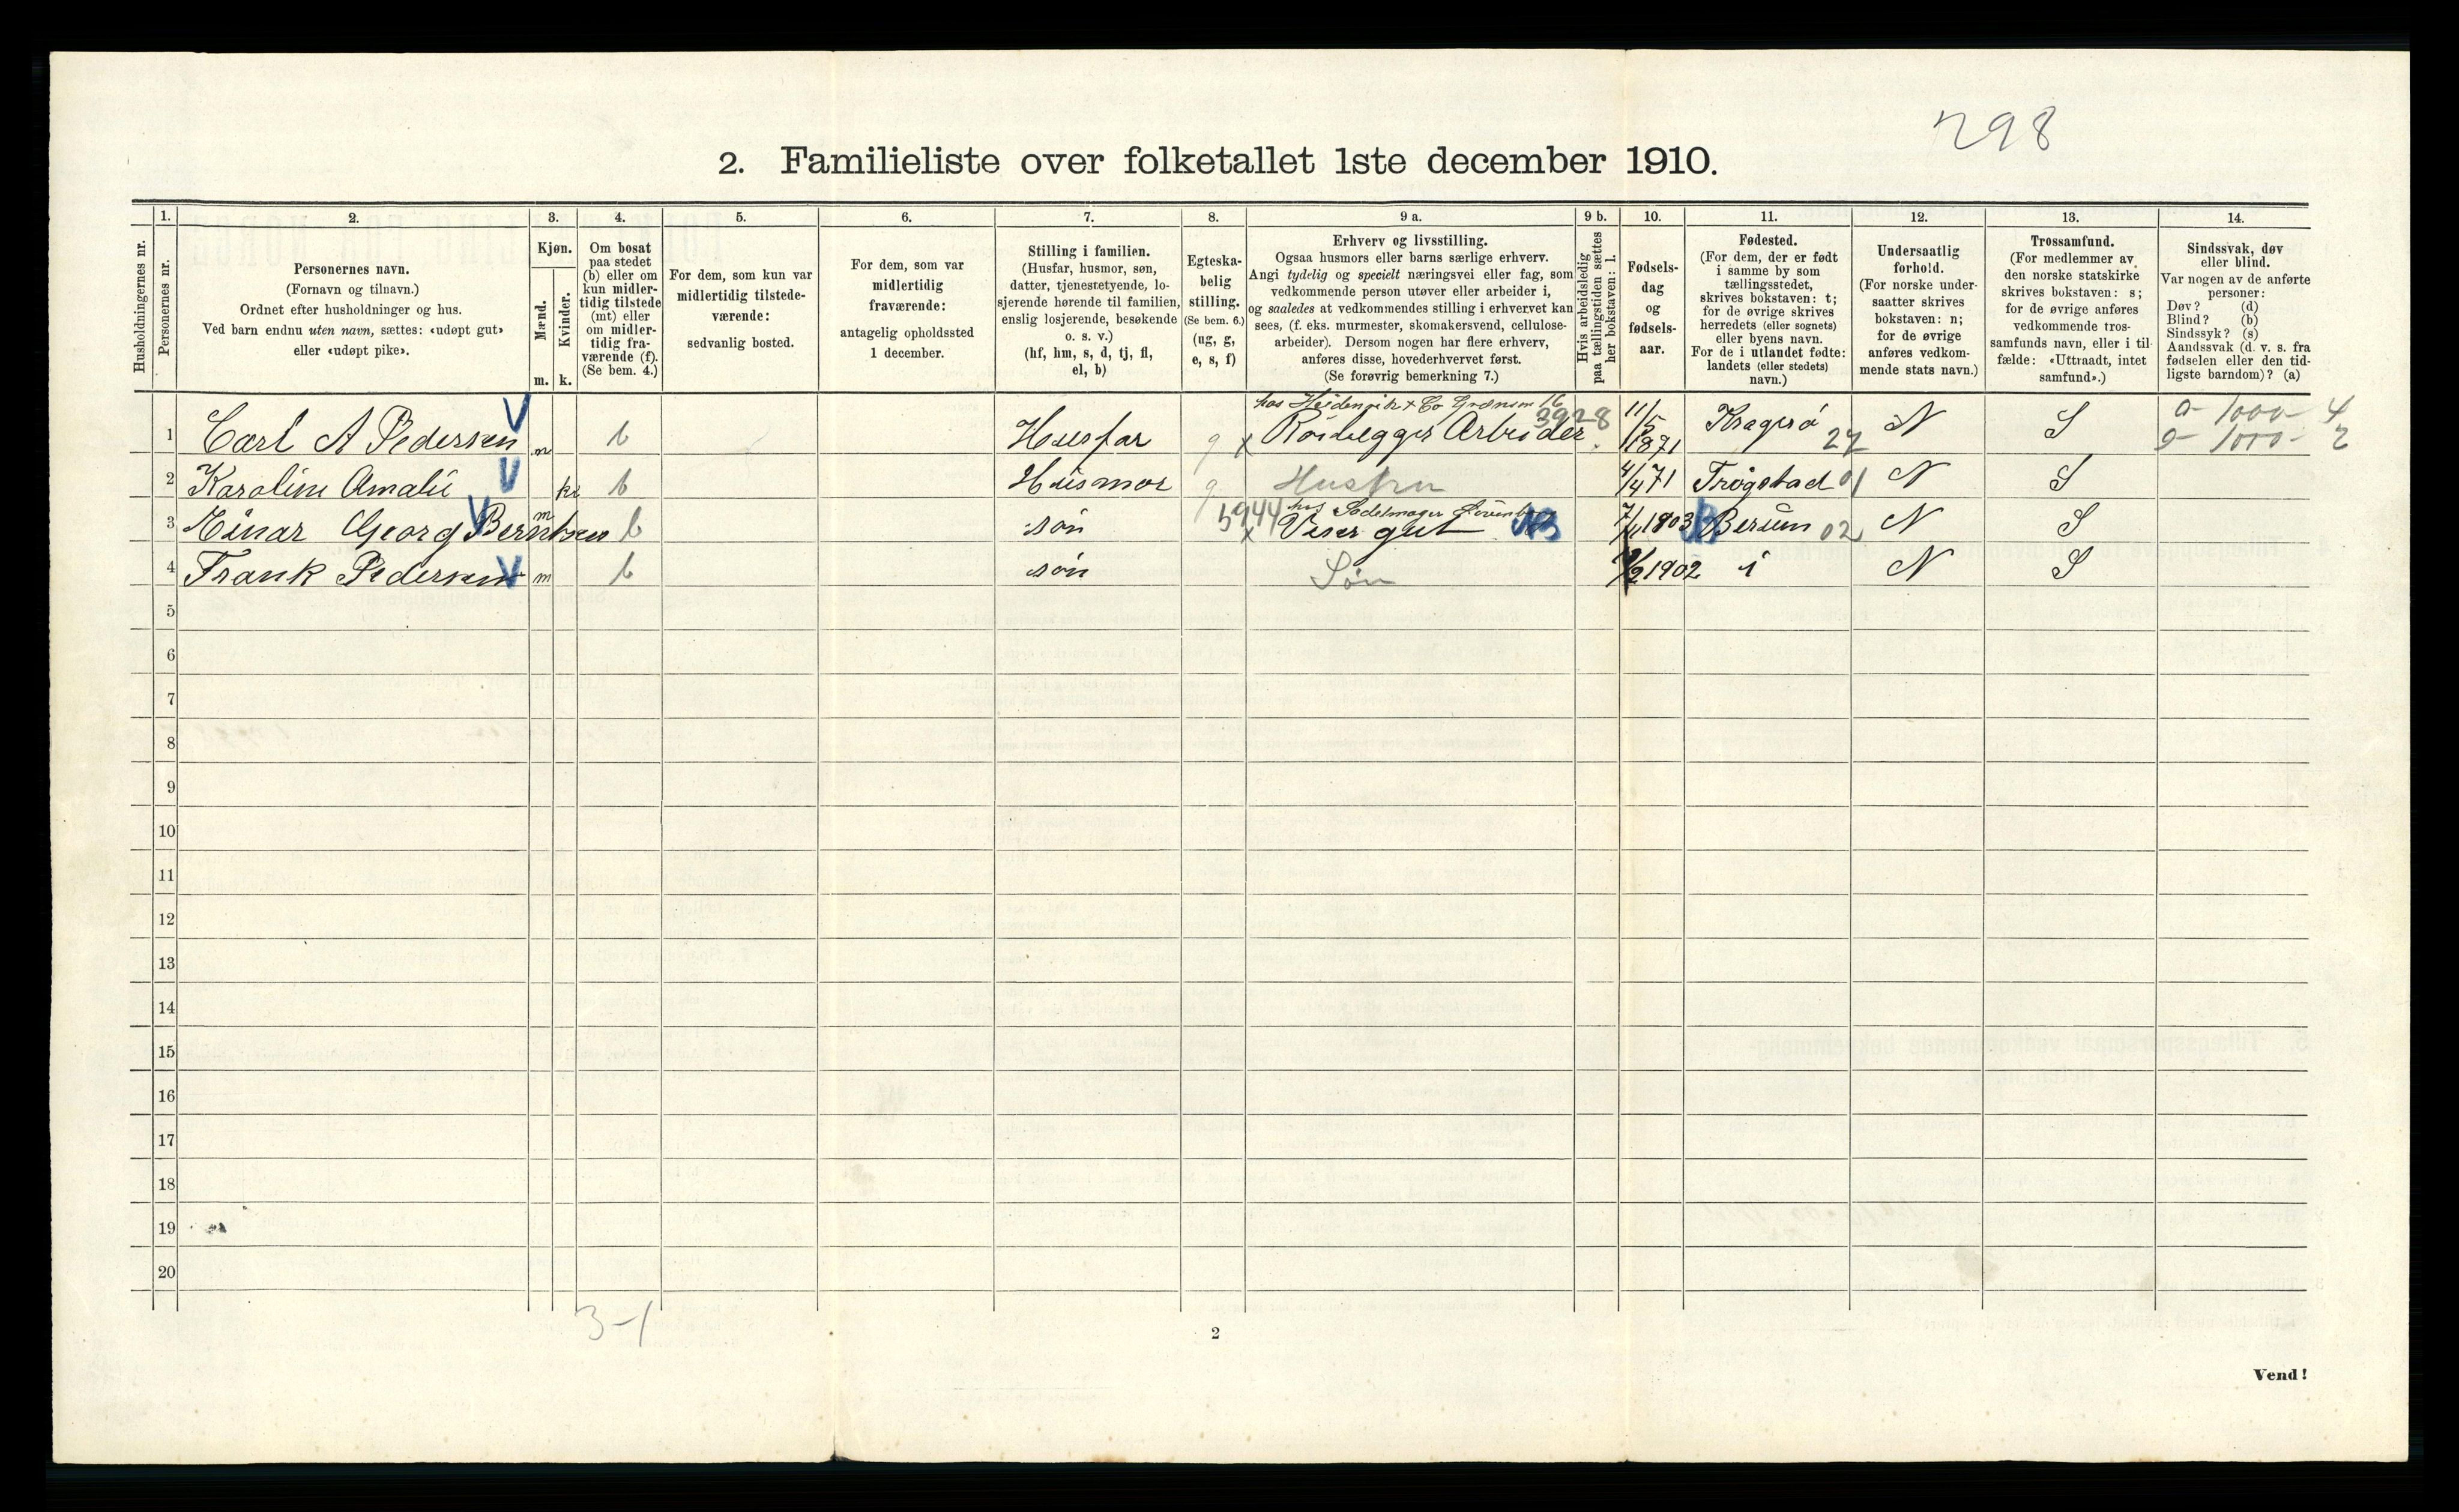 298
2. Familieliste over folketallet 1ste december 1910.
1. 2. 3. 4. 5. 6. 7. 8. 9 a. 9 b. 10. 11. 12. 13. 14.
Husholdningernes nr.
Personernes nr.
Personernes navn.
(Fornavn og tilnavn.)
Ordnet efter husholdninger og hus.
Ved barn endnu uten navn, sættes: «udøpt gut»
eller «udøpt pike».
Kjøn.
Mænd.
m.
Kvinder.
k.
Om bosat
paa stedet
(b) eller om
kun midler-
tidig tilstede
(mt) eller
om midler-
tidig fra-
værende (f).
(Se bem. 4.)
For dem, som kun var
midlertidig tilstede-
værende:
sedvanlig bosted.
For dem, som var
midlertidig
fraværende:
antagelig opholdssted
1 december.
Stilling i familien.
(Husfar, husmor, søn,
datter, tjenestetyende, lo-
sjerende hørende til familien,
enslig losjerende, besøkende
o. s. v.)
(hf, hm, s, d, tj, fl,
el, b)
Egteska-
belig
stilling.
(Se bem. 6.)
(ug, g,
e, s, f)
Erhverv og livsstilling.
Ogsaa husmors eller barns særlige erhverv.
Angi tydelig og specielt næringsvei eller fag, som
vedkommende person utøver eller arbeider i,
og saaledes at vedkommendes stilling i erhvervet kan
sees, (f. eks. murmester, skomakersvend, cellulose-
arbeider). Dersom nogen har flere erhverv,
anføres disse, hovederhvervet først.
(Se forøvrig bemerkning 7.)
Hvis arbeidsledig
paa tællingstiden sættes
her bokstaven: l.
Fødsels-
dag
og
fødsels-
aar.
Fødested.
(For dem, der er født
i samme by som
tællingsstedet,
skrives bokstaven: t;
for de øvrige skrives
herredets (eller sognets)
eller byens navn.
For de i utlandet fødte:
landets (eller stedets)
navn.)
Undersaatlig
forhold.
(For norske under-
saatter skrives
bokstaven: n;
for de øvrige
anføres vedkom-
mende stats navn.)
Trossamfund.
(For medlemmer av
den norske statskirke
skrives bokstaven: s;
for de øvrige anføres
vedkommende tros-
samfunds navn, eller i til-
fælde: «Uttraadt, intet
samfund».)
Sindssvak, døv
eller blind.
Var nogen av de anførte
personer:
Døv? (d)
Blind? (b)
Sindssyk? (s)
Aandssvak (d. v. s. fra
fødselen eller den tid-
ligste barndom)? (a)
1 Carl A Pedersen V m b Husfar g x Rörlegger Arbeider 3928 11/5 1871 Kragerö 27 N S
2 Karoline Amalie V k b Husmor g Hustru 4/4 71 Trøgstad 01 N S
3 Einar Georg Berntsen V m b søn 5944 x Viser gut 1903 Berum 02 N S
4 Frank Pedersen V m b søn Søn 1902 i N S
5
6
7
8
9
10
11
12
13
14
15
16
17
18
19
20
3-1
2
Vend!